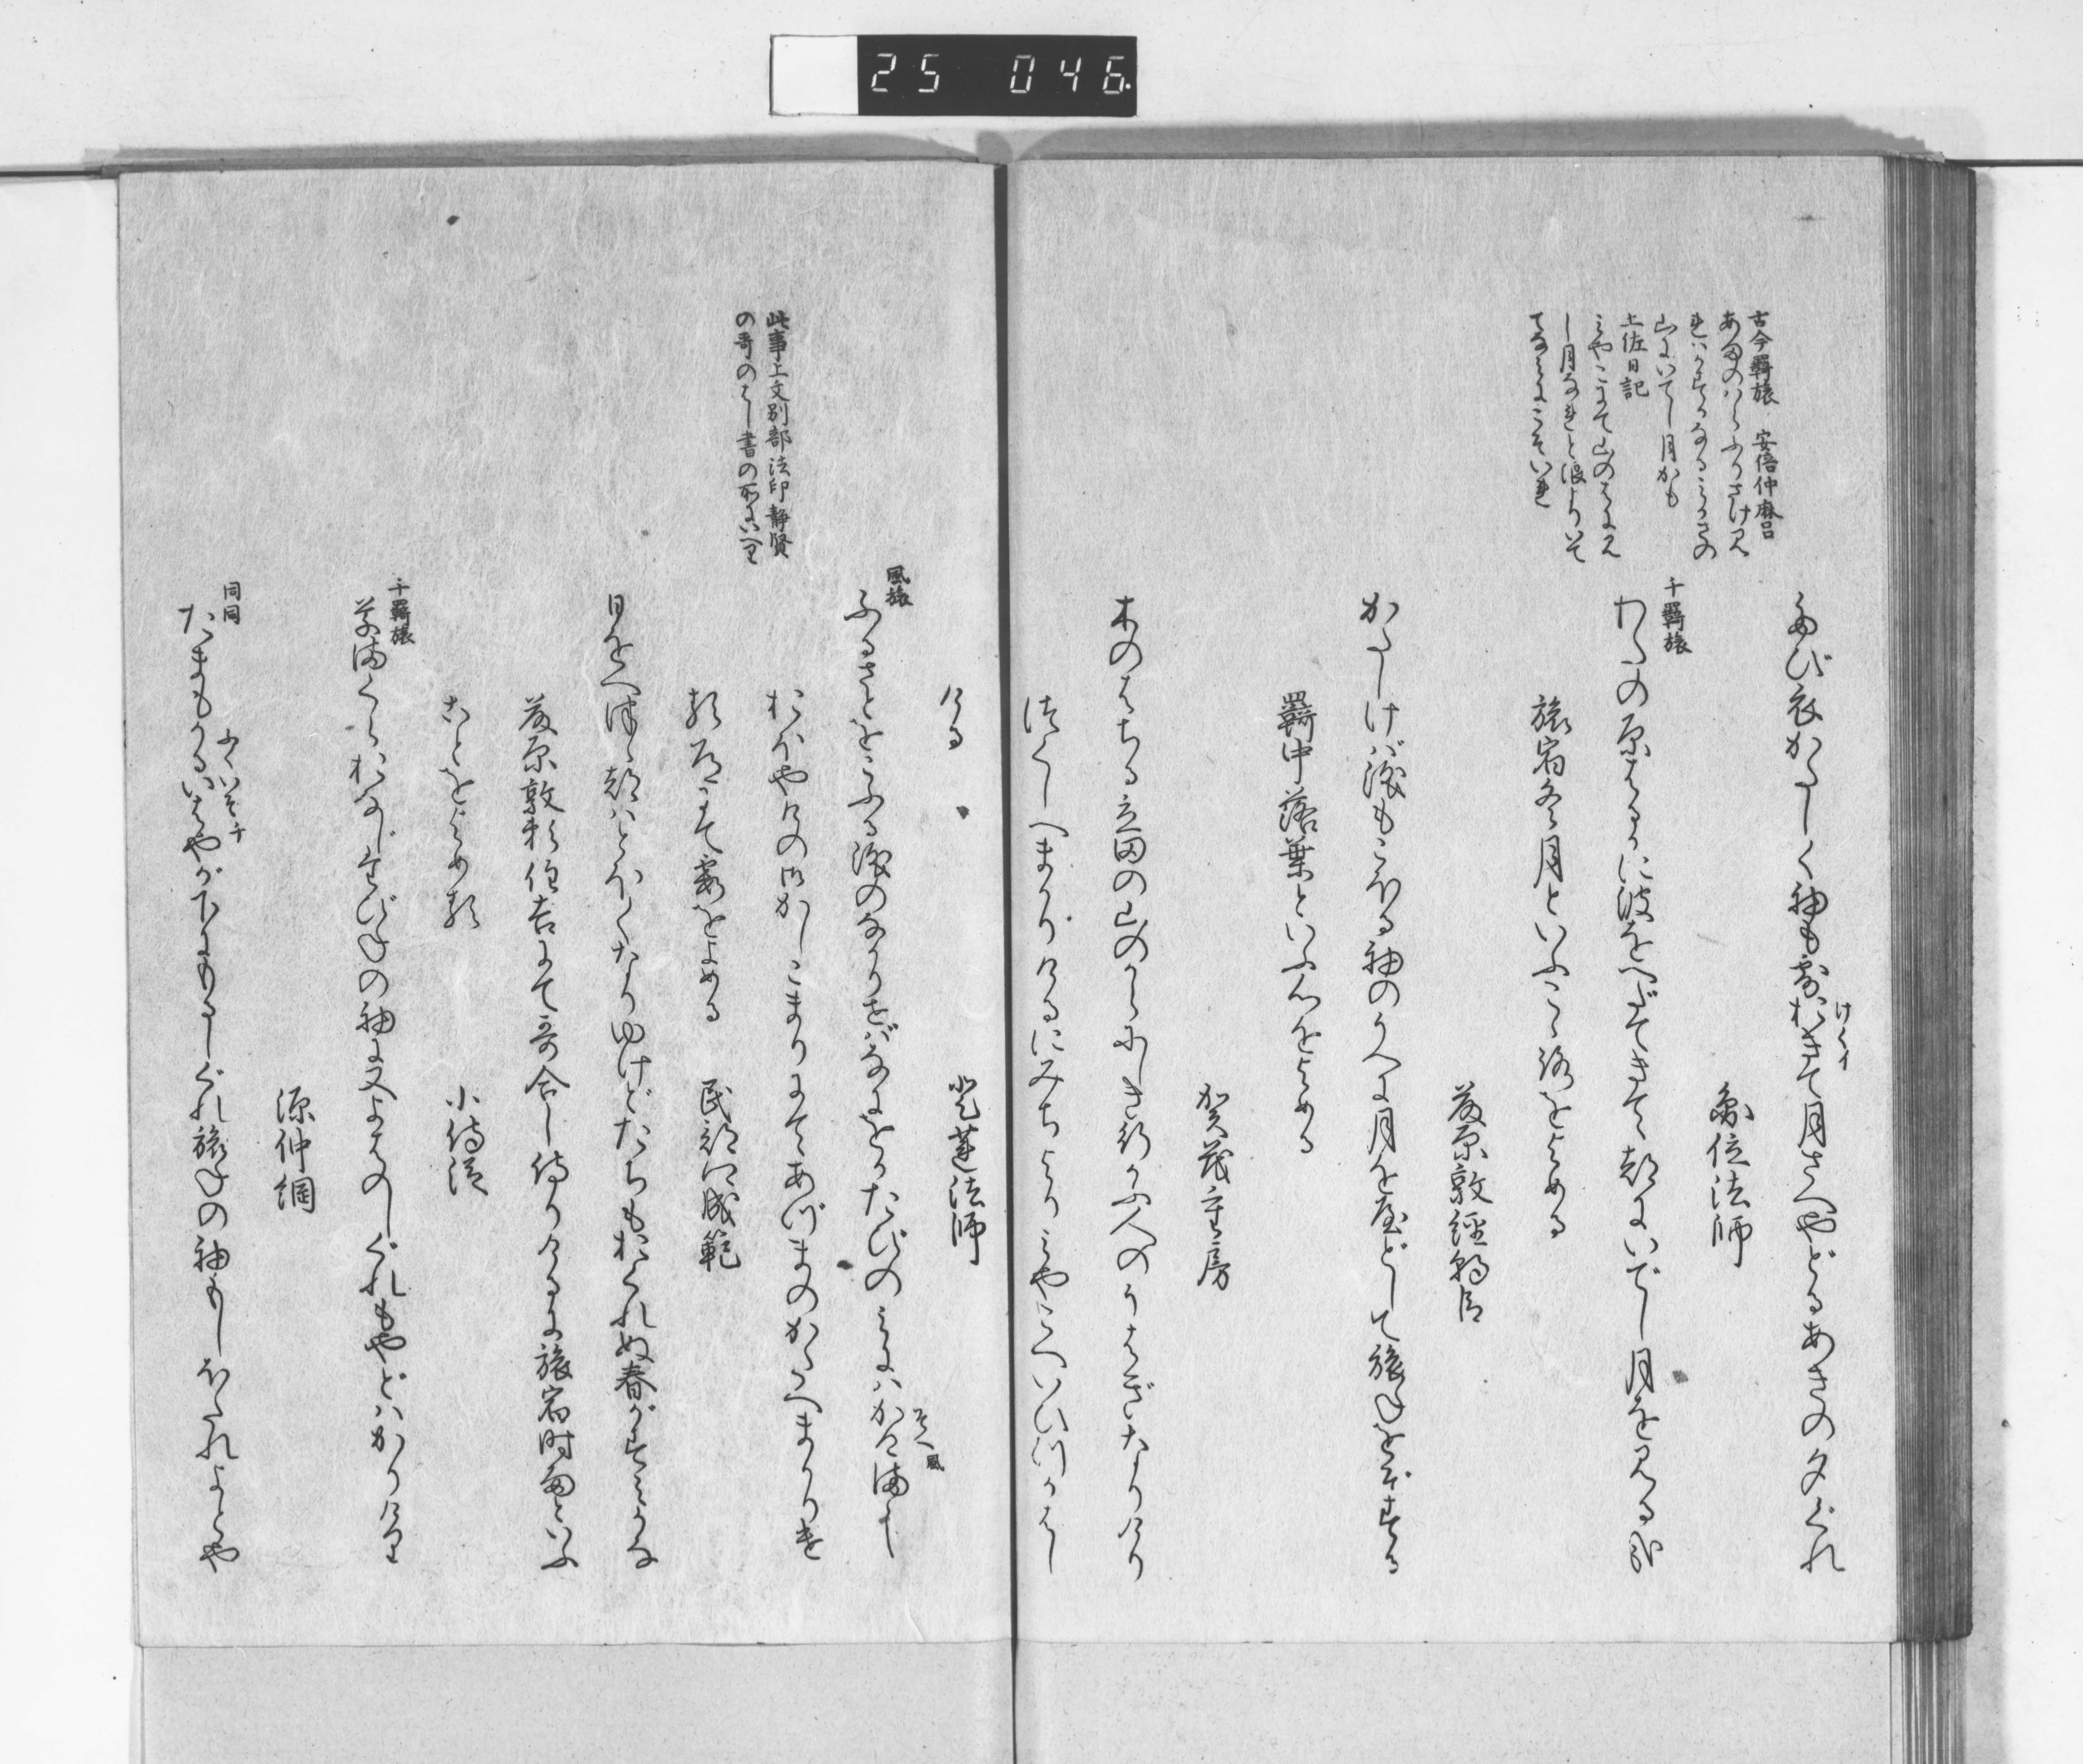 25 046
古今羇旅 安倍仲麻呂
あまのはらふりさけみ
れはかすかなるみかさの
山にいてし月かも
土佐日記
みやこにて山のはにみ
し月なれと浪よりいて
てなみにこそいれ
たび衣かたしく袖も露おきて月さへやどるあきの夕ぐれ
けくイ
千羇旅
わたの原はるかに波をへだてきて都にいでし月を見る哉
旅宿冬月といふこゝろをよめる
藤原敦經朝臣
かたしけば涙もこほる袖のうへに月を屋どして旅ねをぞする
羇中落葉といふ心をよめる
賀茂重房
木のはちる立田の山のからにしき行かふ人のうはぎなりけり
つくしへまかりけるにみちよりみやこへいひつかはし
ける
登蓮法師
風旅
ふるさとをこふる涙のなかりせばなにをかたびのみにはかけまし
そへ風
此事上文別部法印靜賢
の哥のはし書の所にいへり
おほやけの御かしこまりにてあづまのかたへまかりけ
る道にて霞をよめる
民部卿成範
日をへつゝ都はとほくなりゆけどたちもおくれぬ春がすみかな
藤原敦頼住吉にて哥合し侍りけるに旅宿時雨といふ
ことをよめる
小侍從
千羇旅
草まくらおなじたびねの袖に又よはのしぐれもやどはかりけり
源仲綱
同同
たまもふくいそやが下にもるしぐれ旅ねの袖もしほたれよとや